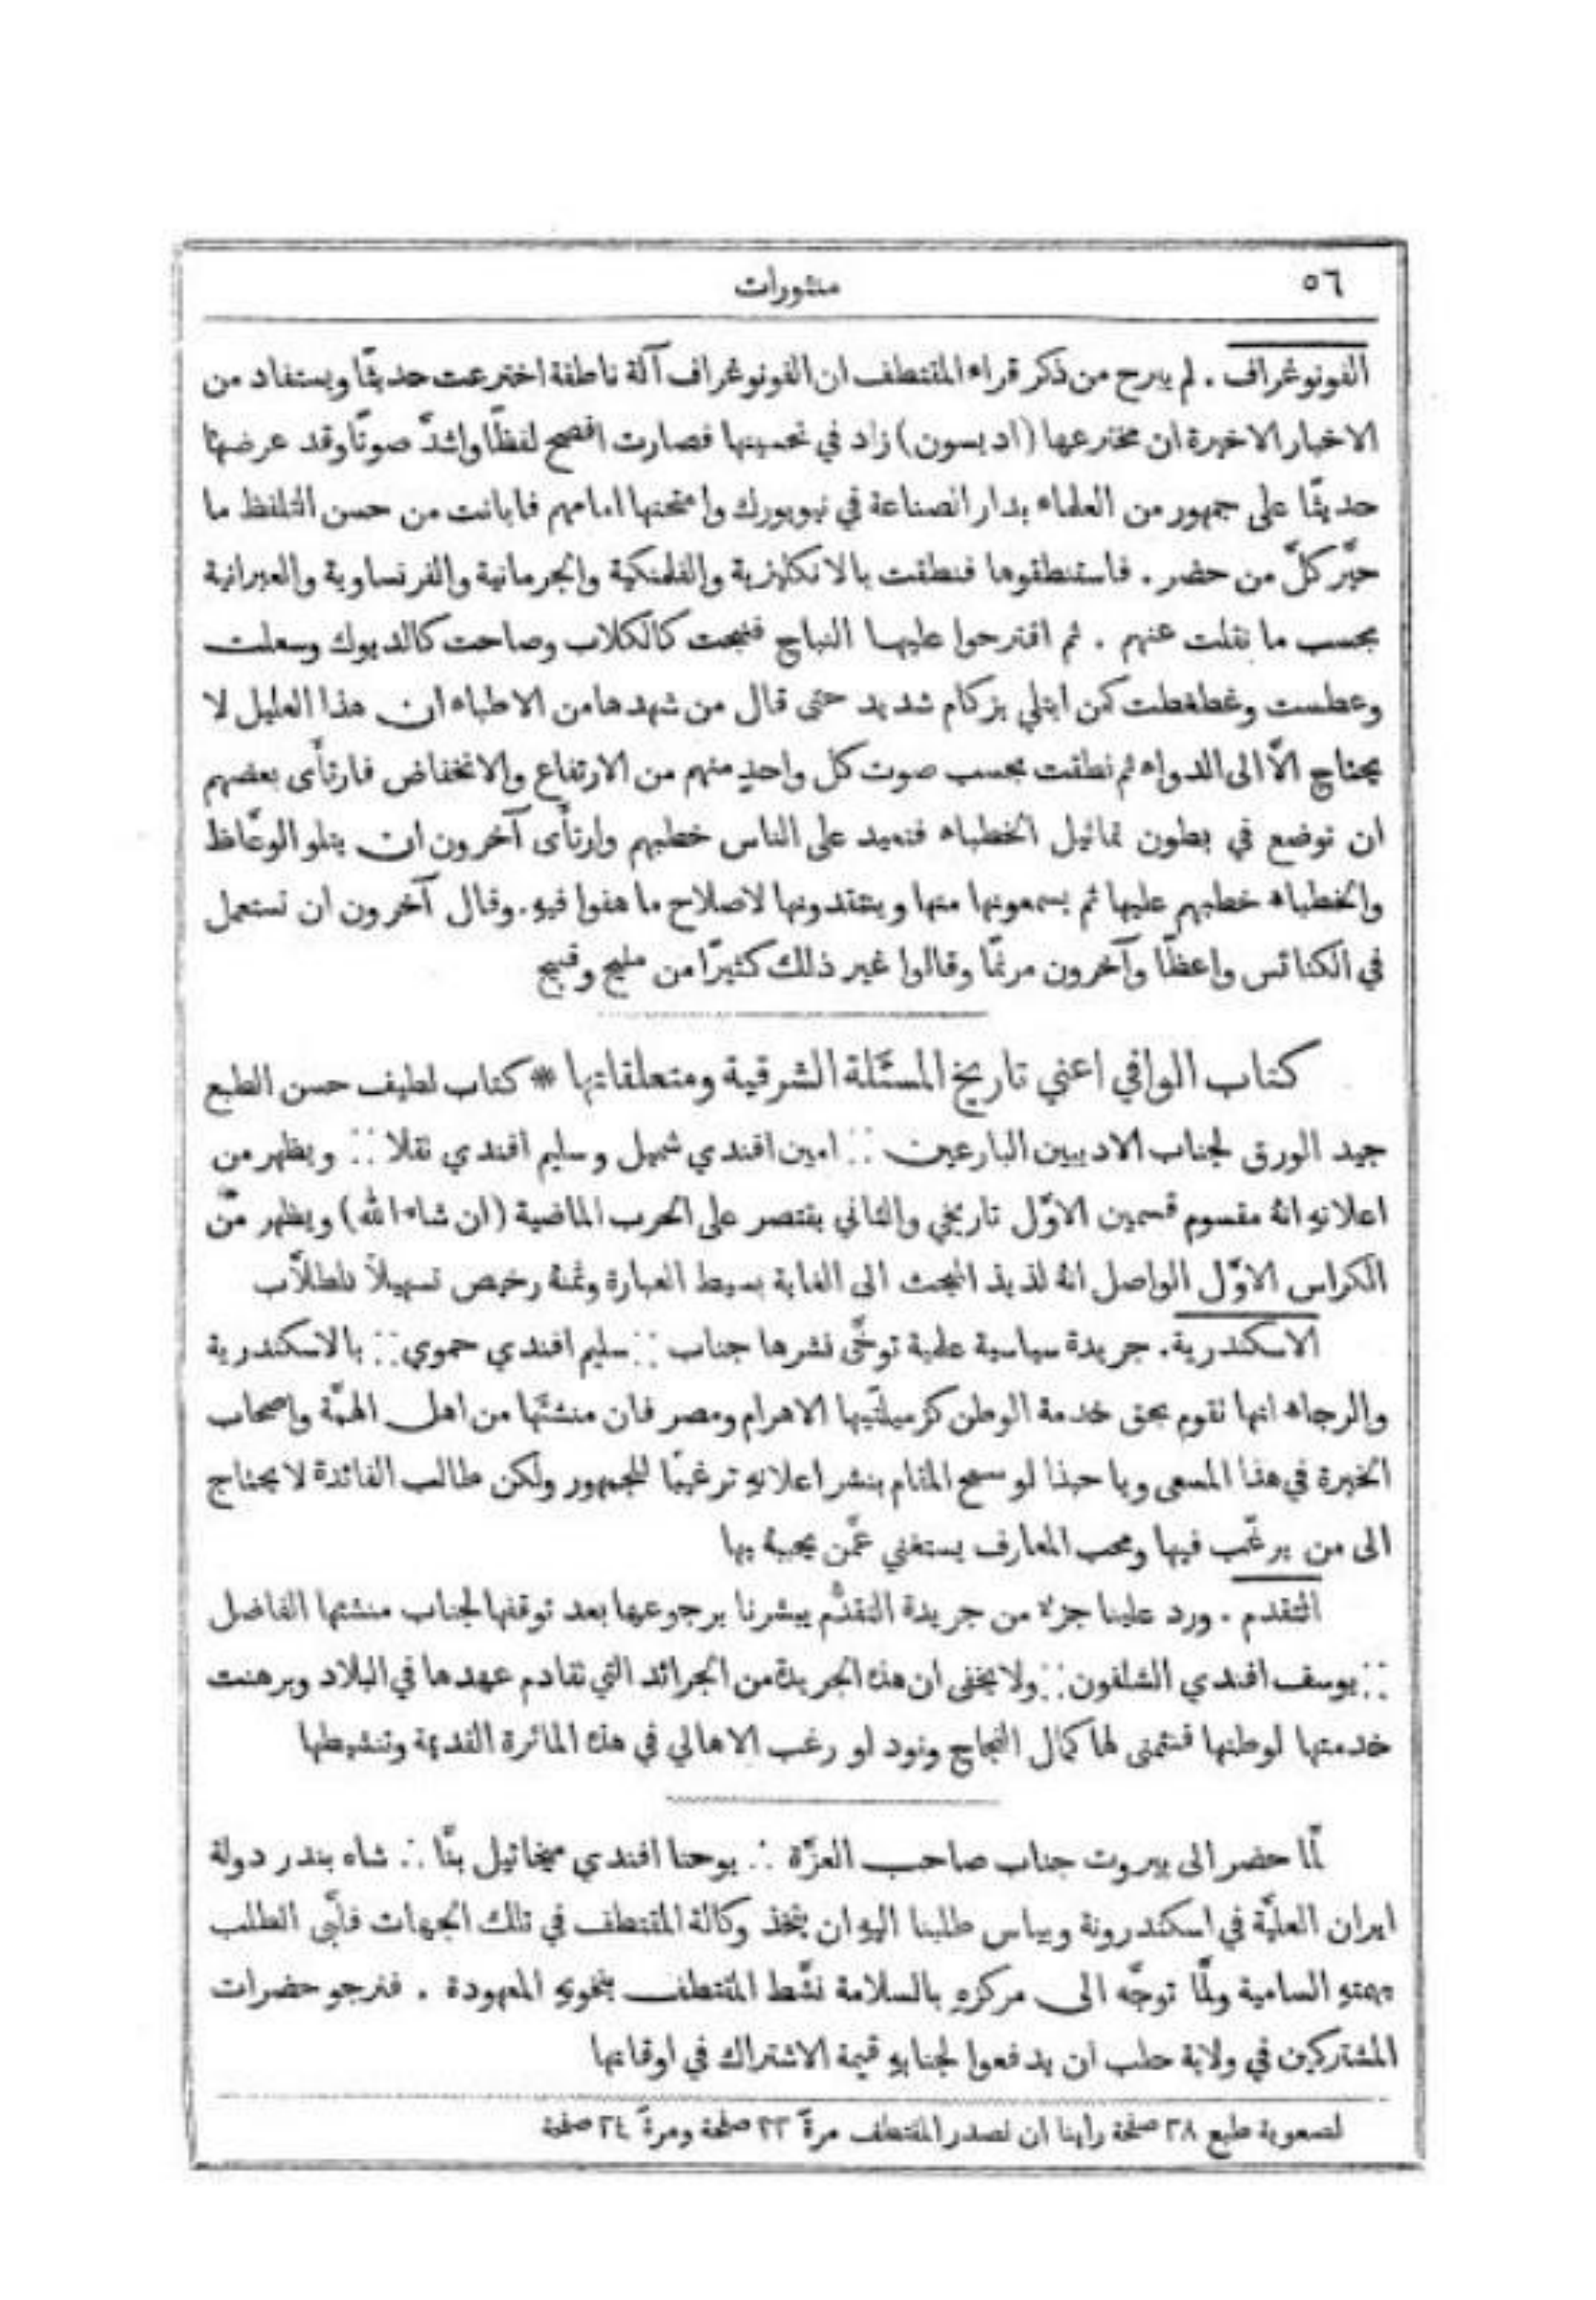 ٥٦
منثورات
الفونوغراف . لم يبرح من ذكر قراء المقتطف ان الفونوغراف آلة ناطقة اخترعت حديثًا ويستفاد من
الاخبار الاخيرة ان مخترعها (اديسون) زاد في تحسينها فصارت افصح لفظًا واشدَّ صوتًا وقد عرضها
حديثًا على جمهور من العلماء بدار الصناعة في نيويورك وامتحنها امامهم فابانت من حسن التلفظ ما
حيَّر كلَّ من حضر . فاستنطقوها فنطقت بالانكليزية والفلمنكية والجرمانية والفرنساوية والعبرانية
بحسب ما نقلت عنهم . ثم اقترحوا عليها النباح فنبحت كالكلاب وصاحت كالديوك وسعلت
وعطست وغطغطت كمن ابتلي بزكام شديد حتى قال من شهدها من الاطباء ان هذا العليل لا
يحتاج الَّا الى الدواء ثم نطقت بحسب صوت كل واحدٍ منهم من الارتفاع والانخفاض فارتأَى بعضهم
ان توضع في بطون تماثيل الخطباء فتعيد على الناس خطبهم وارتأَى آخرون ان يتلو الوعَّاظ
والخطباء خطبهم عليها ثم يسمعونها منها وينتقدونها لاصلاح ما هفوا فيهِ . وقال آخرون ان تستعمل
في الكنائس واعظًا وآخرون مرنمًا وقالوا غير ذلك كثيرًا من مليح وقبيح
كتاب الوافي اعني تاريخ المسئلة الشرقية ومتعلقاتها * كتاب لطيف حسن الطبع
جيد الورق لجناب الاديبين البارعين ∴ امين افندي شميل وسليم افندي نقلا ∴ ويظهر من
اعلانهِ انهُ مقسوم قسمين الاوَّل تاريخي والثاني يقتصر على الحرب الماضية (ان شاء الله) ويظهر من
الكراس الاوَّل الواصل انهُ لذيذ البحث الى الغاية بسيط العبارة وثمنهُ رخيص تسهيلًا للطلَّاب
الاسكندرية . جريدة سياسية علمية توخَّى نشرها جناب ∴ سليم افندي حموي ∴ بالاسكندرية
والرجاء انها تقوم بحق خدمة الوطن كزميلتَيها الاهرام ومصر فان منشئَها من اهل الهمَّة واصحاب
الخبرة في هذا المسعى ويا حبذا لو سمح المقام بنشر اعلانهِ ترغيبًا للجمهور ولكن طالب الفائدة لا يحتاج
الى من يرغّب فيها ومحب المعارف يستغني عمَّن يحببهُ بها
التقدم . ورد علينا جزءٌ من جريدة التقدُّم يبشرنا برجوعها بعد توقفها لجناب منشئها الفاضل
∴ يوسف افندي الشلفون ∴ ولا يخفى ان هذه الجريدة من الجرائد التي تقادم عهدها في البلاد وبرهنت
خدمتها لوطنها فنتمنى لها كمال النجاح ونود لو رغب الاهالي في هذه المائرة القديمة وتنشيطها
لمَّا حضر الى بيروت جناب صاحب العزَّة ∴ يوحنا افندي ميخائيل بنَّا ∴ شاه بندر دولة
ايران العليَّة في اسكندرونة وبياس طلبنا اليهِ ان يتخذ وكالة المقتطف في تلك الجهات فلبَّى الطلب
بهمتهِ السامية ولمَّا توجَّه الى مركزهِ بالسلامة نشَّط المقتطف بنخوتهِ المعهودة . فنرجو حضرات
المشتركين في ولاية حلب ان يدفعوا لجنابهِ قيمة الاشتراك في اوقاتها
لصعوبة طبع ٢٨ صفحة راينا ان نصدر المقتطف مرةً ٣٢ صفحة ومرةً ٢٤ صفحة